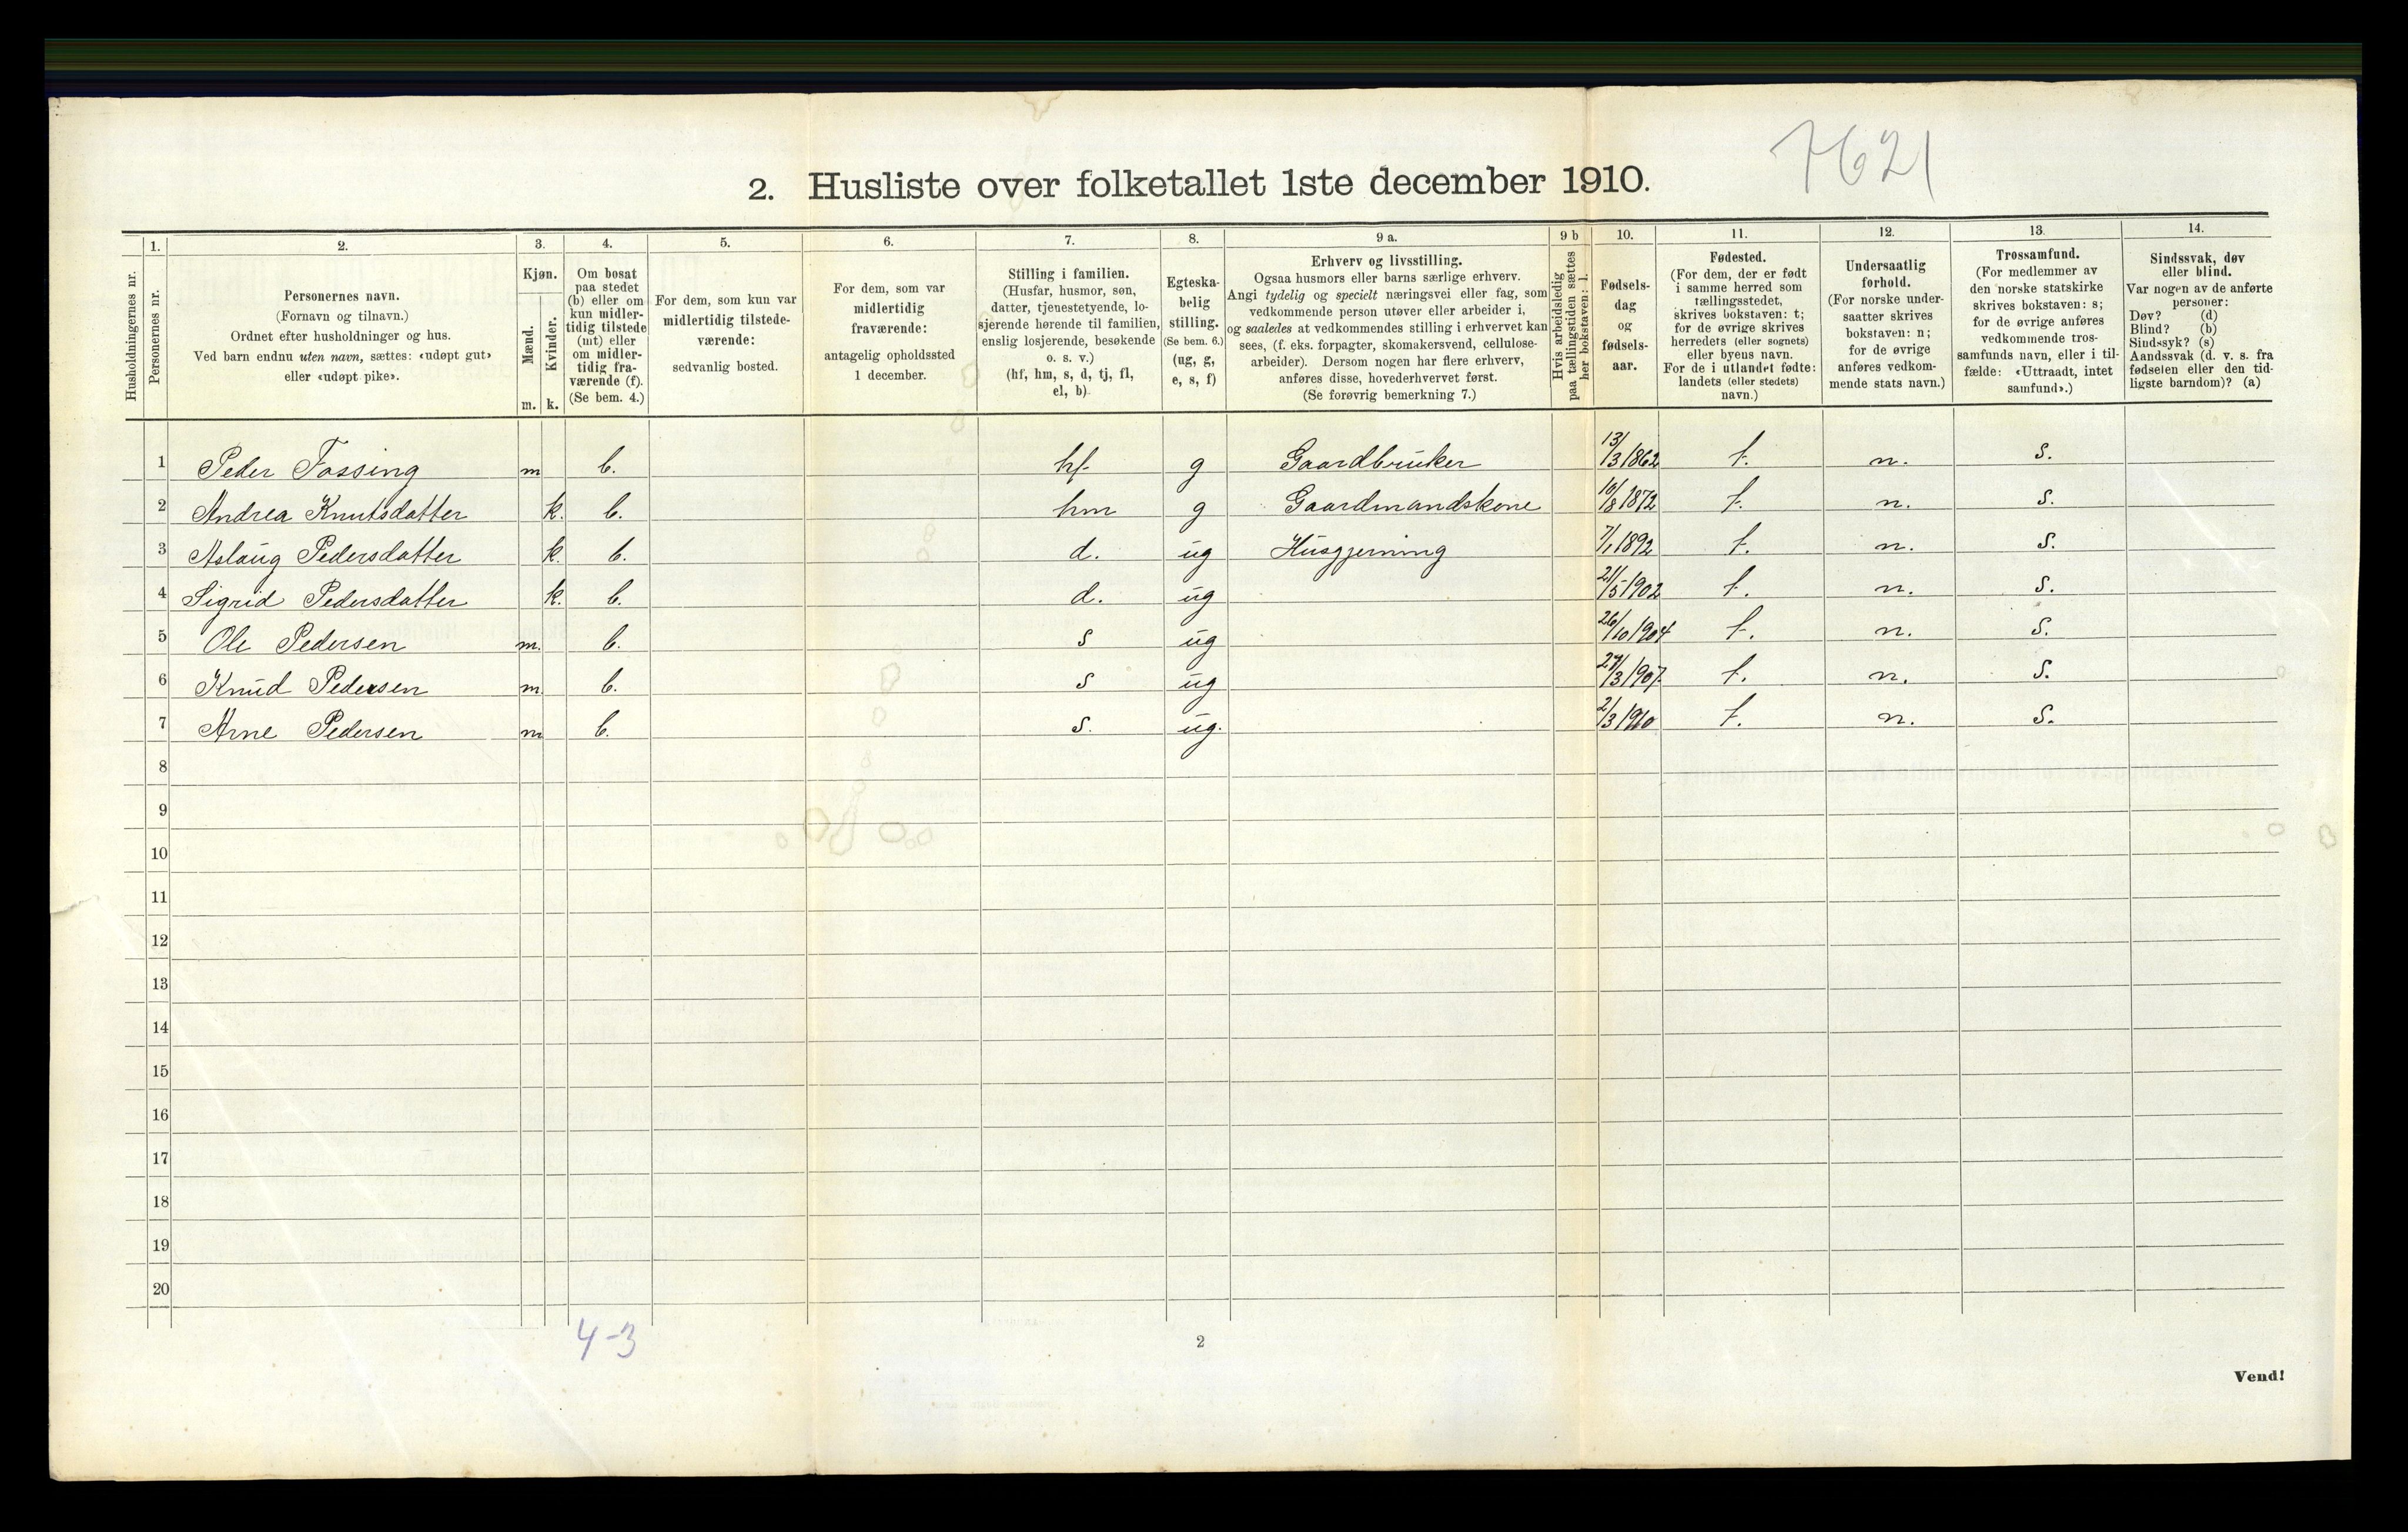 7621
2. Husliste over folketallet 1ste december 1910.
Husholdningernes nr.
1.
Personernes nr.
2.
Personernes navn.
(Fornavn og tilnavn.)
Ordnet efter husholdninger og hus.
Ved barn endnu uten navn, sættes: «udøpt gut»
eller «udøpt pike».
3.
Kjøn.
Mænd.
m.
Kvinder.
k.
4.
Om bosat
paa stedet
(b) eller om
kun midler-
tidig tilstede
(mt) eller
om midler-
tidig fra-
værende (f).
(Se bem. 4.)
5.
For dem, som kun var
midlertidig tilstede-
værende:
sedvanlig bosted.
6.
For dem, som var
midlertidig
fraværende:
antagelig opholdssted
1 december.
7.
Stilling i familien.
(Husfar, husmor, søn,
datter, tjenestetyende, lo-
sjerende hørende til familien,
enslig losjerende, besøkende
o. s. v.)
(hf, hm, s, d, tj, fl,
el, b)
8.
Egteska-
belig
stilling.
(Se bem. 6.)
(ug, g,
e, s, f)
9 a.
Erhverv og livsstilling.
Ogsaa husmors eller barns særlige erhverv.
Angi tydelig og specielt næringsvei eller fag, som
vedkommende person utøver eller arbeider i,
og saaledes at vedkommendes stilling i erhvervet kan
sees, (f. eks. forpagter, skomakersvend, cellulose-
arbeider). Dersom nogen har flere erhverv,
anføres disse, hovederhvervet først.
(Se forøvrig bemerkning 7.)
9 b
Hvis arbeidsledig
paa tællingstiden sættes
her bokstaven: l.
10.
Fødsels-
dag
og
fødsels-
aar.
11.
Fødested.
(For dem, der er født
i samme herred som
tællingsstedet,
skrives bokstaven: t;
for de øvrige skrives
herredets (eller sognets)
eller byens navn.
For de i utlandet fødte:
landets (eller stedets)
navn.)
12.
Undersaatlig
forhold.
(For norske under-
saatter skrives
bokstaven: n;
for de øvrige
anføres vedkom-
mende stats navn.)
13.
Trossamfund.
(For medlemmer av
den norske statskirke
skrives bokstaven: s;
for de øvrige anføres
vedkommende tros-
samfunds navn, eller i til-
fælde: «Uttraadt, intet
samfund».)
14.
Sindssvak, døv
eller blind.
Var nogen av de anførte
personer:
Døv? (d)
Blind? (b)
Sindssyk? (s)
Aandssvak (d. v. s. fra
fødselen eller den tid-
ligste barndom)? (a)
1 Peder Fossing m b. hf. g Gaardbruker 13/3 1862 t. n. s.
2 Andrea Knutsdatter k. b. hm g Gaardmandskone 10/8 1872 t. n. s.
3 Aslaug Pedersdatter k. b. d. ug Husgjerning 7/1 1892 t. n. s.
4 Sigrid Pedersdatter k. b. d. ug 21/5 1902 t. n. s.
5 Ole Pedersen m. b. s ug 26/10 1904 t. n. s.
6 Knud Pedersen m. b. s ug 27/3 1907 t. n. s.
7 Arne Pedersen m b. s. ug. 2/3 1910 t. n. s.
8
9
10
11
12
13
14
15
16
17
18
19
20
4-3
2
Vend!